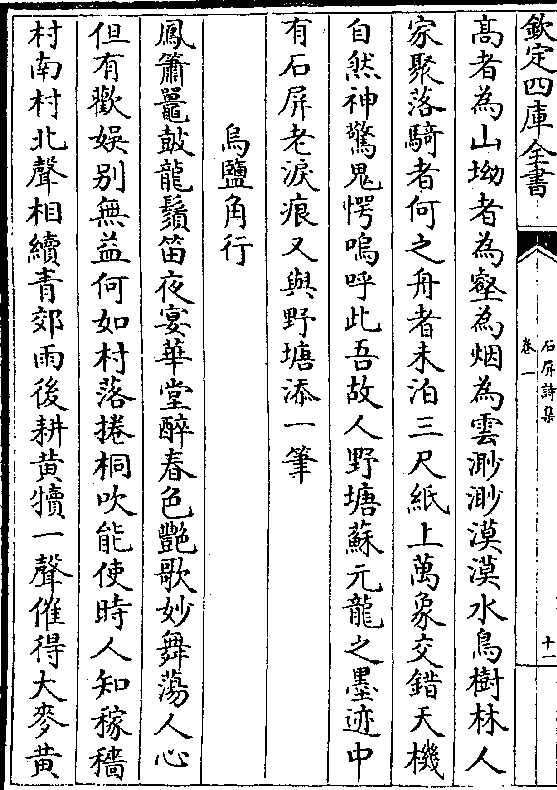 欽定四庫全書
石屏詩集
卷一
十一
高者為山坳者為壑為烟為雲渺渺漠漠水鳥樹林人
家聚落騎者何之舟者未泊三尺紙上萬象交錯天機
自然神驚鬼愕嗚呼此吾故人野塘蘇元龍之墨迹中
有石屏老淚痕又與野塘添一筆
烏鹽角行
鳳簫鼉鼓龍鬚笛夜宴華堂醉春色艷歌妙舞蕩人心
但有歡娱别無益何如村落捲桐吹能使時人知稼穡
村南村北聲相續青郊雨後耕黄犢一聲催得大麥黄